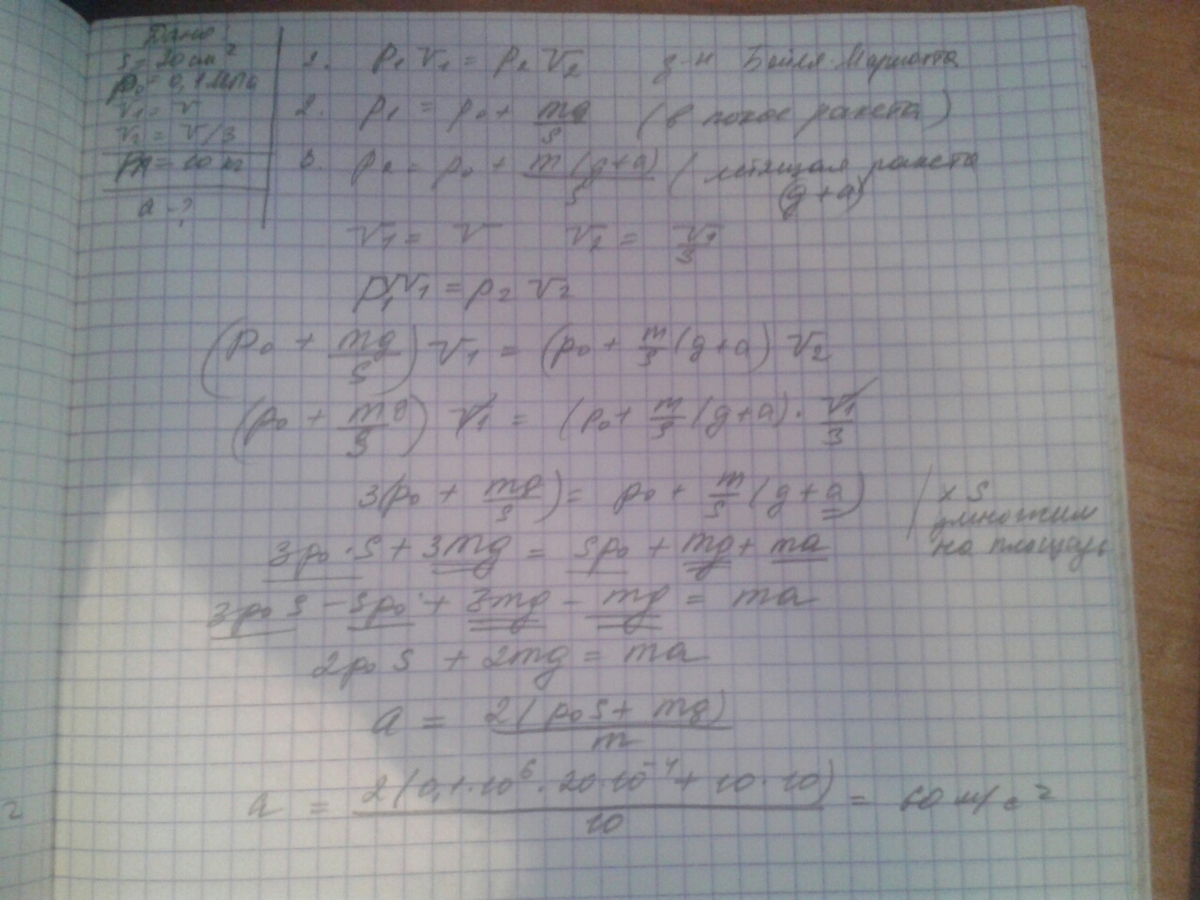 Дано:
S = 20 см²
p₀ = 0,1 МПа
V₁ = V
V₂ = V/3
m = 10 кг
a - ?
1. p₁V₁ = p₂V₂ з-н Бойля-Мариотта
2. p₁ = p₀ + mg/S (в покое ракета)
3. p₂ = p₀ + m(g+a)/S (летящая ракета
(g+a)
V₁ = V V₂ = V₁/3
p₁V₁ = p₂V₂
(p₀ + mg/S) V₁ = (p₀ + m/S (g+a) V₂
(p₀ + mg/S) V₁ = (p₀ + m/S (g+a) · V₁/3
3(p₀ + mg/S) = p₀ + m/S (g+a) | × S
умножим
на площадь
3p₀·S + 3mg = Sp₀ + mg + ma
3p₀S - Sp₀ + 3mg - mg = ma
2p₀S + 2mg = ma
a = 2(p₀S + mg)/m
a = 2(0,1·10⁶·20·10⁻⁴ + 10·10)/10 = 60 м/с²
2